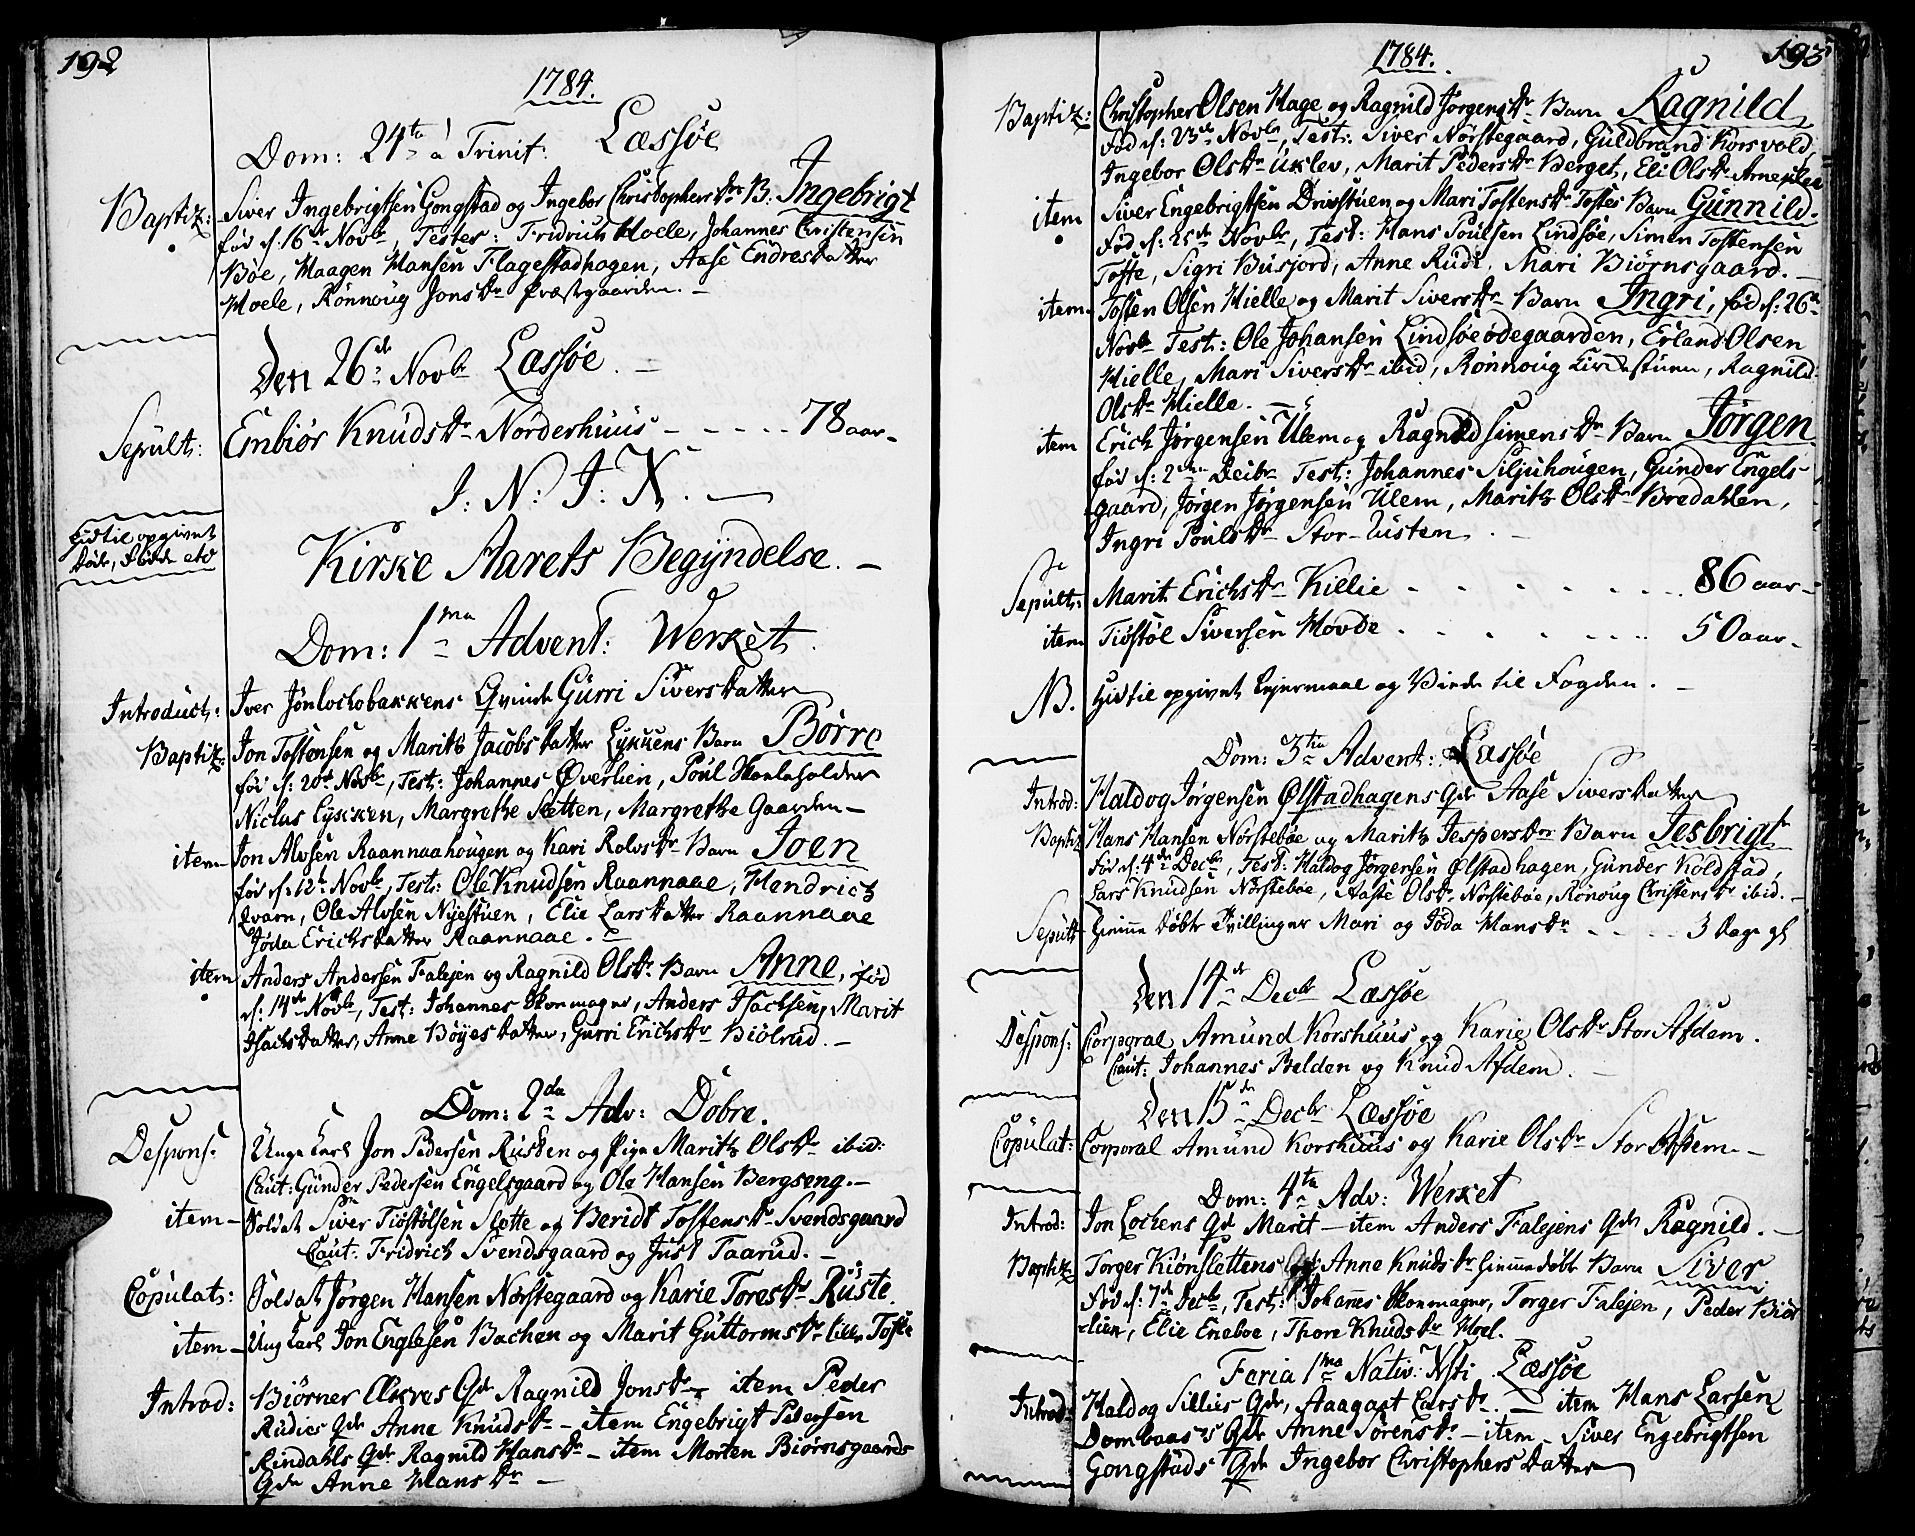 192
1784.
Dom: 24ta a Trinit: Læssøe
Baptiz: Siver Ingebrigtsen Gongstad og Ingebor Christophersdtr B. Ingebrigt
fød d: 16de Novbr, Testes: Fridrich Hoele, Johannes Christensen
Bøe, Haagen Hansen Flagestadhagen, Aase Endresdatter
Hoele, Rønnoug Jonsdr Præstgaarden. —
Den 26de Novbr Læssøe. —
Sepult: Embiør Knudsdr Norderhuus - - - - - 78 aar.
I: N: J: X. —
hidtil opgivet
døde, fødde etc
Kirke Aarets Begyndelse. —
Dom: 1ma Advent: Werket.
Introduct: Iver Jønlochobakkens Qvinde Gurri Siversdatter
Baptiz: Jon Tostensen og Marith Jacobsdatter Lykkens Barn Børre
fød d: 20de Novbr, Test: Johannes Øverlien, Poul Skaleholder
Niclus Lykken, Margrethe Sletten, Margrethe Gaarden —
item Jon Alvsen Raannaahougen og Kari Rolvsdr Barn Joen
fød d: 12te Novbr, Test: Ole Knudsen Raannaae, Hendrich
Qvarn, Ole Alvsen Nyestuen, Elie Larsdatter Raannaae
Jøda Erichsdatter Raannaae. —
item Anders Andersen Falejen og Ragnild Olsdr Barn Anne, fød
d: 14de Novbr, Test: Johannes Skonmager, Anders Isachsen, Marit
Isachsdatter, Anne Bøyesdatter, Gurri Erichsdr Biølrud. —
Dom: 2da Adv: Dobre.
Despons: Unge Karl Jon Pedersen Rusten og Pige Marith Olsdr ibid:
Caut: Gunder Pedersen Engelsgaard og Ole Hansen Bergseng. —
item — Soldat Siver Tiøstølsen Slette og Beridt Tostensdr Svendsgaard
Caut: Fridrich Svendsgaard og Just Taarud. —
Copulat: Soldat Jørgen Hansen Nørstegaard og Karie Toresdr Ruste
item — Ung Karl Jon Englesen Bachen og Marit Guttormsdr lille Tofte
Introd: Biørner Qde Ragnild Jonsdr — item Peder
Rudies Qde Anne Knudsdr — item Engebrigt Pedersen
Rindahls Qde Ragnild Hansdr — item Morten Biørnsgaards
Qde Anne Hansdr —
1784.
193
Baptiz: Christopher Olsen Hage og Ragnild Jørgensdr Barn Ragnild
fød d: 23de Novbr, Test: Siver Nørstegaard, Guldbrand Korsvold,
Ingebor Olsdr Uxlev, Marit Pedersdr Berget, Eli Olsdr
item Siver Engebrigtsen Drivstuen og Mari Tostensdr Toftes Barn Gunnild.
fød d: 25de Novbr, Test: Hans Poulsen Lindsøe, Simen Tostensen
Tofte, Sigri Busjord, Anne Rudi, Mari Biørnsgaard. —
item Tosten Olsen Hielle og Marit Siversdr Barn Ingri, fød d: 26de
Novbr Test: Ole Johansen Lindsøeødegaarden, Erland Olsen
Hielle, Mari Siversdr ibid, Rønnoug, Ragnild
Olsdr Hielle. —
item Erich Jørgensen Ulem og Ragnild Simensdr Barn Jørgen
fød d: 2den Decbr Test: Johannes Siljuhougen, Gunder Engels-
gaard, Jørgen Jørgensen Ulem, Marith Olsdr Bredahlen,
Ingri Poulsdr Stor-Rusten. —
Sepult: Marit Erichsdr Killie - - - - - - 86 aar —
item Tiøstøl Siversen Hovde - - - - - - 50 aar —
NB. hidtil opgivet Lejermaal og til Fogden. —
Dom: 3tia Advent: Læssøe
Introd: Haldog Jørgensen Ølstadhagens Qde Aase Siversdatter
Baptiz Hans Hansen Nørstebøe og Marith Jespersdr Barn Jesbrigt
fød d: 4de Decbr, Test: Haldog Jørgensen Ølstadhagen, Gunder Koldstad,
Lars Knudsen Nørstebøe, Aaste Olsdr Nørstebøe, Rønoug Christensdr ibid. —
Sepult Hiemme døbte Tvillinger Mari og Jøda Hansdr - - - - 3 Dage gl
Den 14de Decbr Læssøe
Despons: Corporal Amund Korshuus og Karie Olsdr Stor Afdem.
Caut: Johannes Belden og Knud Afdem. —
Den 15de Decbr Læssøe
Copulat: Corporal Amund Korshuus og Karie Olsdr Stor Afdem —
Dom: 4ta Adv: Werket
Introd: Jon Lochens Qde Marit — item Anders Falejens Qde Ragnild. —
Baptiz Torger Kiønslettens Anne Knudsdr hiemmedøbt Barn Siver
fød d: 7de Decbr, Test: Johannes Skonmager, Torger Falejen, Peder Biør
-lien, Elie Eneboe, Thore Knudsdr Moel.
Feria 1ma Nativ: Xsti Læssøe
Introd: Haldog Sillies Qde, Aaagaat Larsdr. — item Hans Larsen
Dombaas's Qde Anne Sørensdr — item — Siver Engebrigtsen
Gongstads Qde Ingebor Christophersdatter